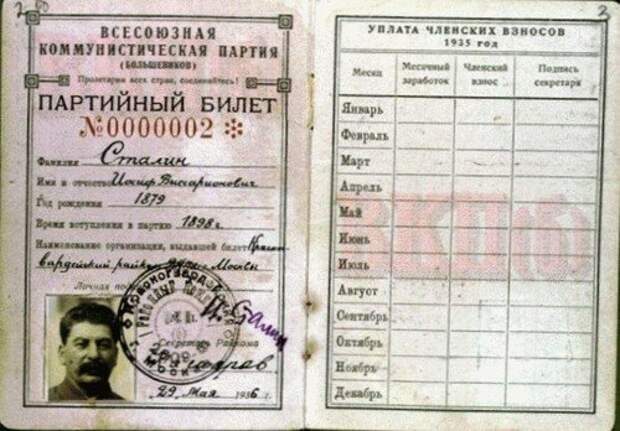 ВСЕСОЮЗНАЯ
КОММУНИСТИЧЕСКАЯ ПАРТИЯ
(БОЛЬШЕВИКОВ)
Пролетарии всех стран, соединяйтесь!
ПАРТИЙНЫЙ БИЛЕТ
№0000002
Фамилия Сталин
Имя и отчество Иосиф Виссарионович
Год рождения 1879
Время вступления в партию 1898 г.
Наименование организации, выдавшей билет Красно
гвардейский райком Москвы
Личная
Сталин
Секретарь Райкома
29 Мая 1936 г.
3
УПЛАТА ЧЛЕНСКИХ ВЗНОСОВ
1935 год
Месяц Месячный заработок Членский взнос Подпись секретаря
Январь
Февраль
Март
Апрель
Май
Июнь
Июль
Август
Сентябрь
Октябрь
Ноябрь
Декабрь
ВКП(б)